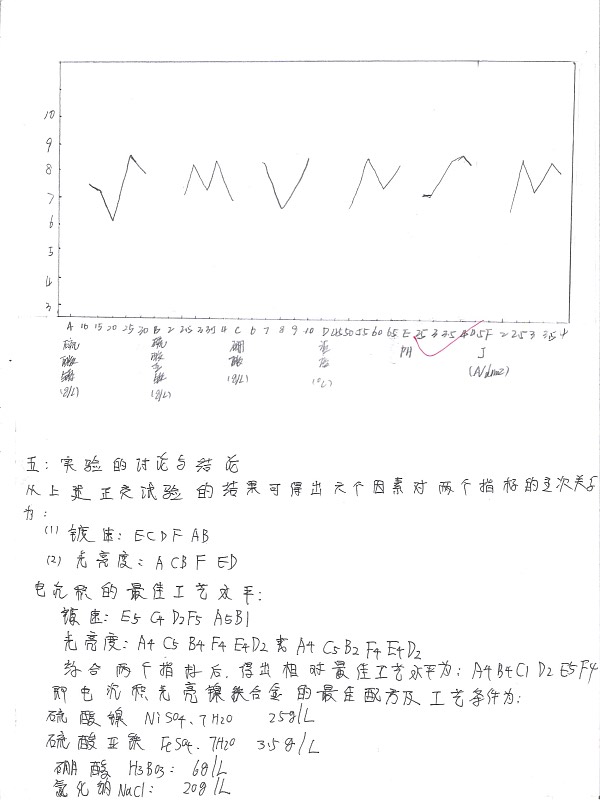 10
9
8
7
6
5
4
3
A 10 15 20 25 30 B 2 2.5 3 3.5 4 C 6 7 8 9 10 D 45 50 55 60 65 E 2.5 3 3.5 4 4.5 F 2 2.5 3 3.5 4
硫酸镍(g/L) 硫酸亚铁(g/L) 硼酸(g/L) 温度(℃) PH J(A/dm2)
五:实验的讨论与结论
从上述正交试验的结果可得出六个因素对两个指标的主次关系
为:
(1) 镀速: E C D F A B
(2) 光亮度: A C B F E D
电沉积的最佳工艺水平:
镀速: E5 C4 D2 F5 A5 B1
光亮度: A4 C5 B4 F4 E4 D2 A4 C5 B2 F4 E4 D2
综合两个指标后,得出相对最佳工艺水平为: A4 B4 C1 D2 E5 F4
即电沉积光亮镍铁合金的最佳配方及工艺条件为:
硫酸镍 NiSO4.7H2O 25g/L
硫酸亚铁 FeSO4.7H2O 3.5g/L
硼酸 H3BO3: 6g/L
氯化钠 NaCl: 20g/L